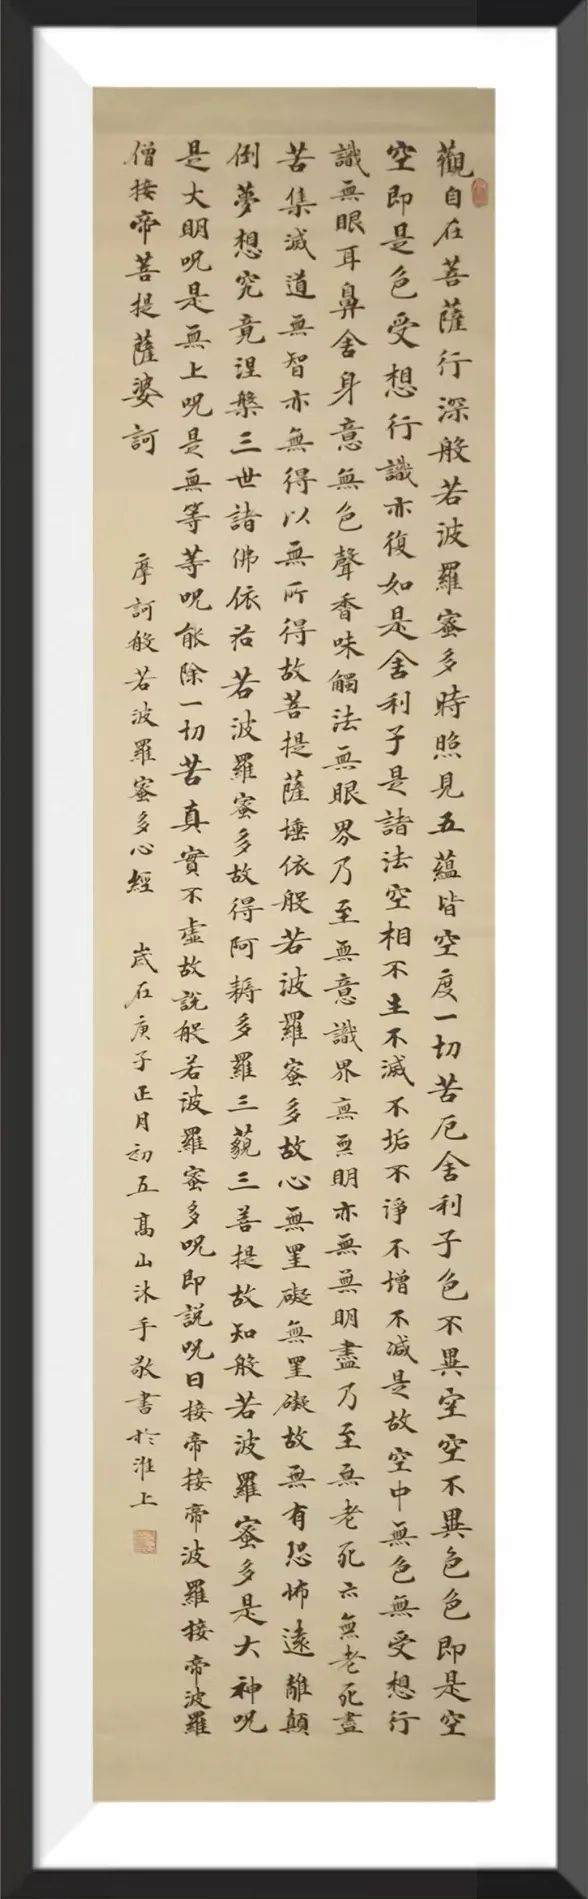 觀自在菩薩行深般若波羅蜜多時照見五蘊皆空度一切苦厄舍利子色不異空空不異色色即是空
空即是色受想行識亦復如是舍利子是諸法空相不生不滅不垢不淨不增不減是故空中無色無受想行
識無眼耳鼻舍身意無色聲香味觸法無眼界乃至無意識界無無明亦無無明盡乃至無老死亦無老死盡
苦集滅道無智亦無得以無所得故菩提薩埵依般若波羅蜜多故心無罣礙無罣礙故無有恐怖遠離顛
倒夢想究竟涅槃三世諸佛依若波羅蜜多故得阿耨多羅三藐三菩提故知般若波羅蜜多是大神呪
是大明呪是無上呪是無等等呪能除一切苦真實不虛故說般若波羅蜜多呪即說呪曰接帝接帝波羅接帝波羅
僧接帝菩提薩婆訶
摩訶般若波羅蜜多心經 歲在庚子正月初五高山沐手敬書於淮上